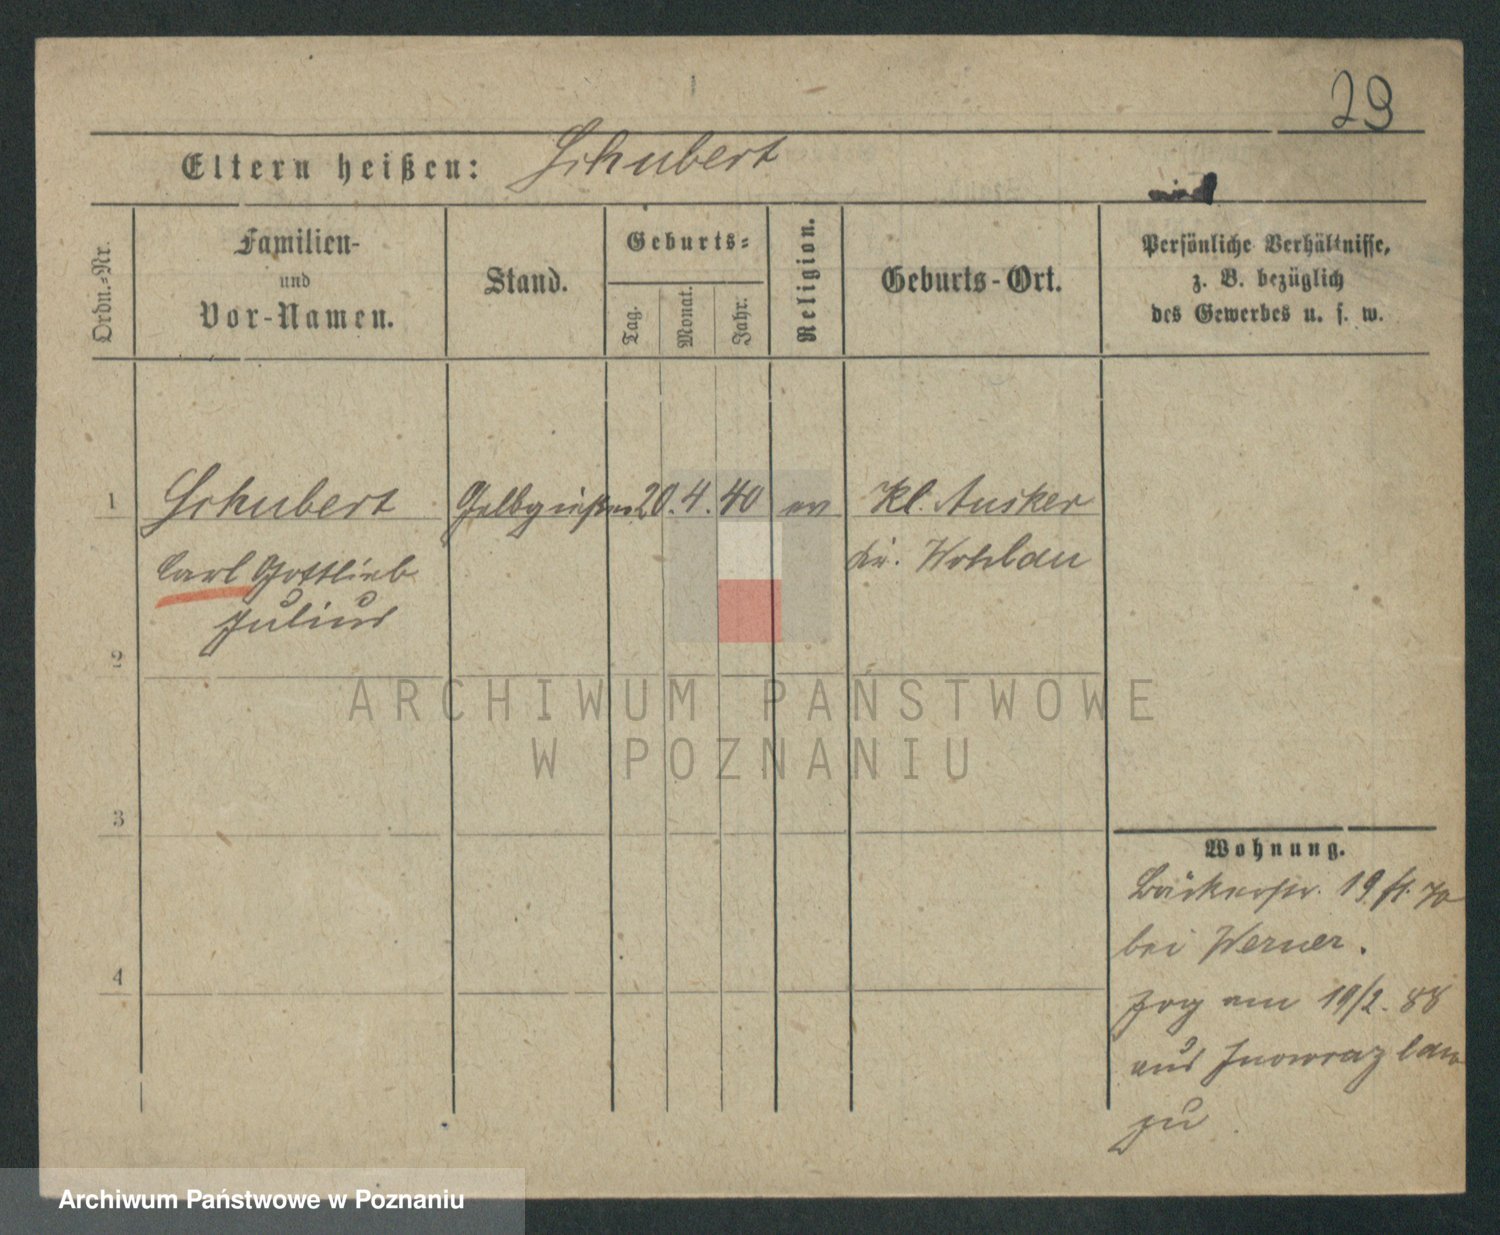 29
Eltern heißen: Schubert
Ordn.-Nr.
Familien-
und
Vor-Namen.
Stand.
Geburts-
Tag.
Monat.
Jahr.
Religion.
Geburts-Ort.
Persönliche Verhältnisse,
z. B. bezüglich
des Gewerbes u. s. w.
1 Schubert Gelbgießer 20. 4. 40 ev Kl. Ausker
Carl Gottlieb Kr. Wohlau
Julius
2
3
4
Wohnung.
Bäckerstr. 19
bei Werner.
zog am 19/2. 88
aus Inowrazlaw
zu
ARCHIWUM PAŃSTWOWE
W POZNANIU
Archiwum Państwowe w Poznaniu